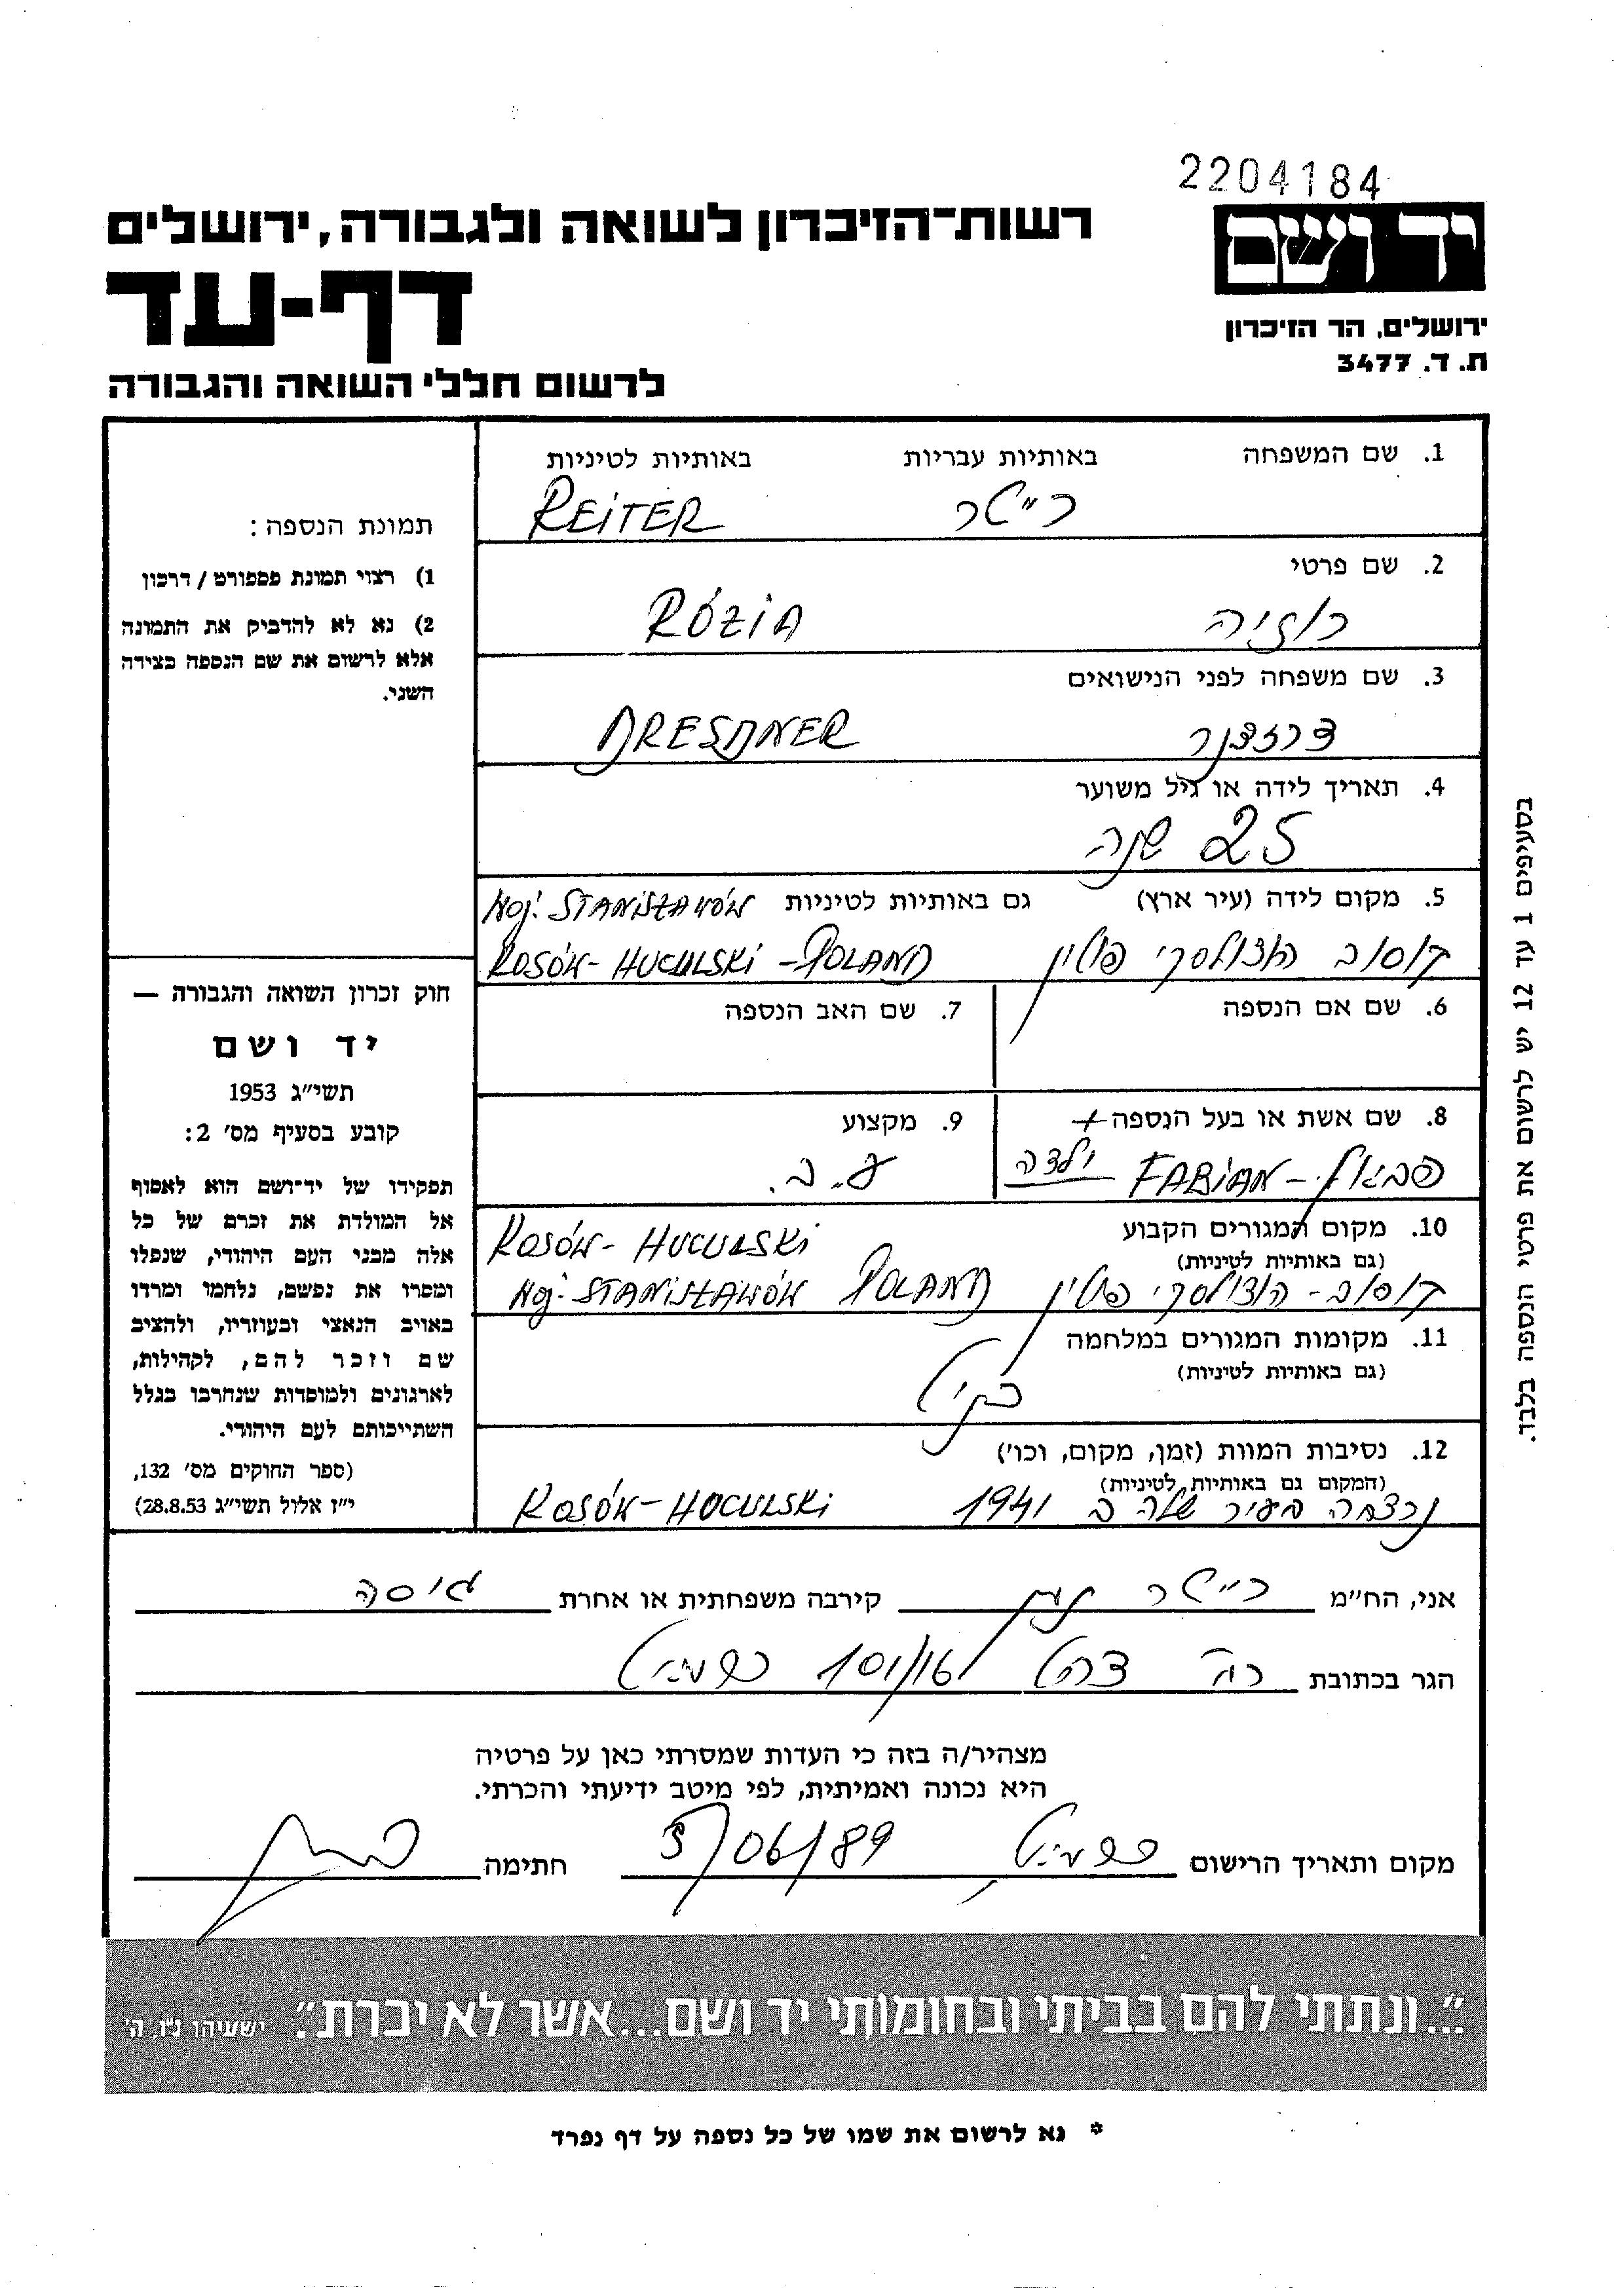 2204184
יד ושם
ירושלים, הר הזיכרון
ת. ד. 3477
רשות-הזיכרון לשואה ולגבורה, ירושלים
דף-עד
לרשום חללי השואה והגבורה
1. שם המשפחה באותיות עבריות באותיות לטיניות
רייטר REITER
2. שם פרטי
רוזיה RÓZIA
3. שם משפחה לפני הנישואים
דרזדנר DRESDNER
4. תאריך לידה או גיל משוער
25 שנה
5. מקום לידה (עיר ארץ) גם באותיות לטיניות Woj. STANISŁAWÓW
קוסוב הוצולסקי פולין KOSÓW-HUCULSKI - POLAND
6. שם אם הנספה 7. שם האב הנספה
8. שם אשת או בעל הנספה + 9. מקצוע
FABIAN - וילדה ע.ב.
10. מקום המגורים הקבוע KOSÓW-HUCULSKI
(גם באותיות לטיניות)
קוסוב - הוצולסקי פולין POLAND Woj. STANISŁAWÓW
11. מקומות המגורים במלחמה
(גם באותיות לטיניות)
כנ"ל
12. נסיבות המוות (זמן, מקום, וכו')
(המקום גם באותיות לטיניות)
נרצחה בעיר שלה ב 1941 KOSÓW-HUCULSKI
תמונת הנספה:
1) רצוי תמונת פספורט / דרכון
2) נא לא להדביק את התמונה
אלא לרשום את שם הנספה בצידה
השני.
חוק זכרון השואה והגבורה —
יד ושם
תשי"ג 1953
קובע בסעיף מס' 2:
תפקידו של יד-ושם הוא לאסוף
אל המולדת את זכרם של כל
אלה מבני העם היהודי, שנפלו
ומסרו את נפשם, נלחמו ומרדו
באויב הנאצי ובעוזריו, ולהציב
שם וזכר להם, לקהילות,
לארגונים ולמוסדות שנחרבו בגלל
השתייכותם לעם היהודי.
(ספר החוקים מס' 132,
י"ז אלול תשי"ג 28.8.53)
בסעיפים 1 עד 12 יש לרשום את פרטי הנספה בלבד.
אני, הח"מ רייטר קירבה משפחתית או אחרת גיסה
הגר בכתובת צהל 101/16 כרמיאל
מצהיר/ה בזה כי העדות שמסרתי כאן על פרטיה
היא נכונה ואמיתית, לפי מיטב ידיעתי והכרתי.
מקום ותאריך הרישום כרמיאל 5/06/89 חתימה
"...ונתתי להם בביתי ובחומותי יד ושם...אשר לא יכרת". ישעיהו נ"ו, ה'
* נא לרשום את שמו של כל נספה על דף נפרד